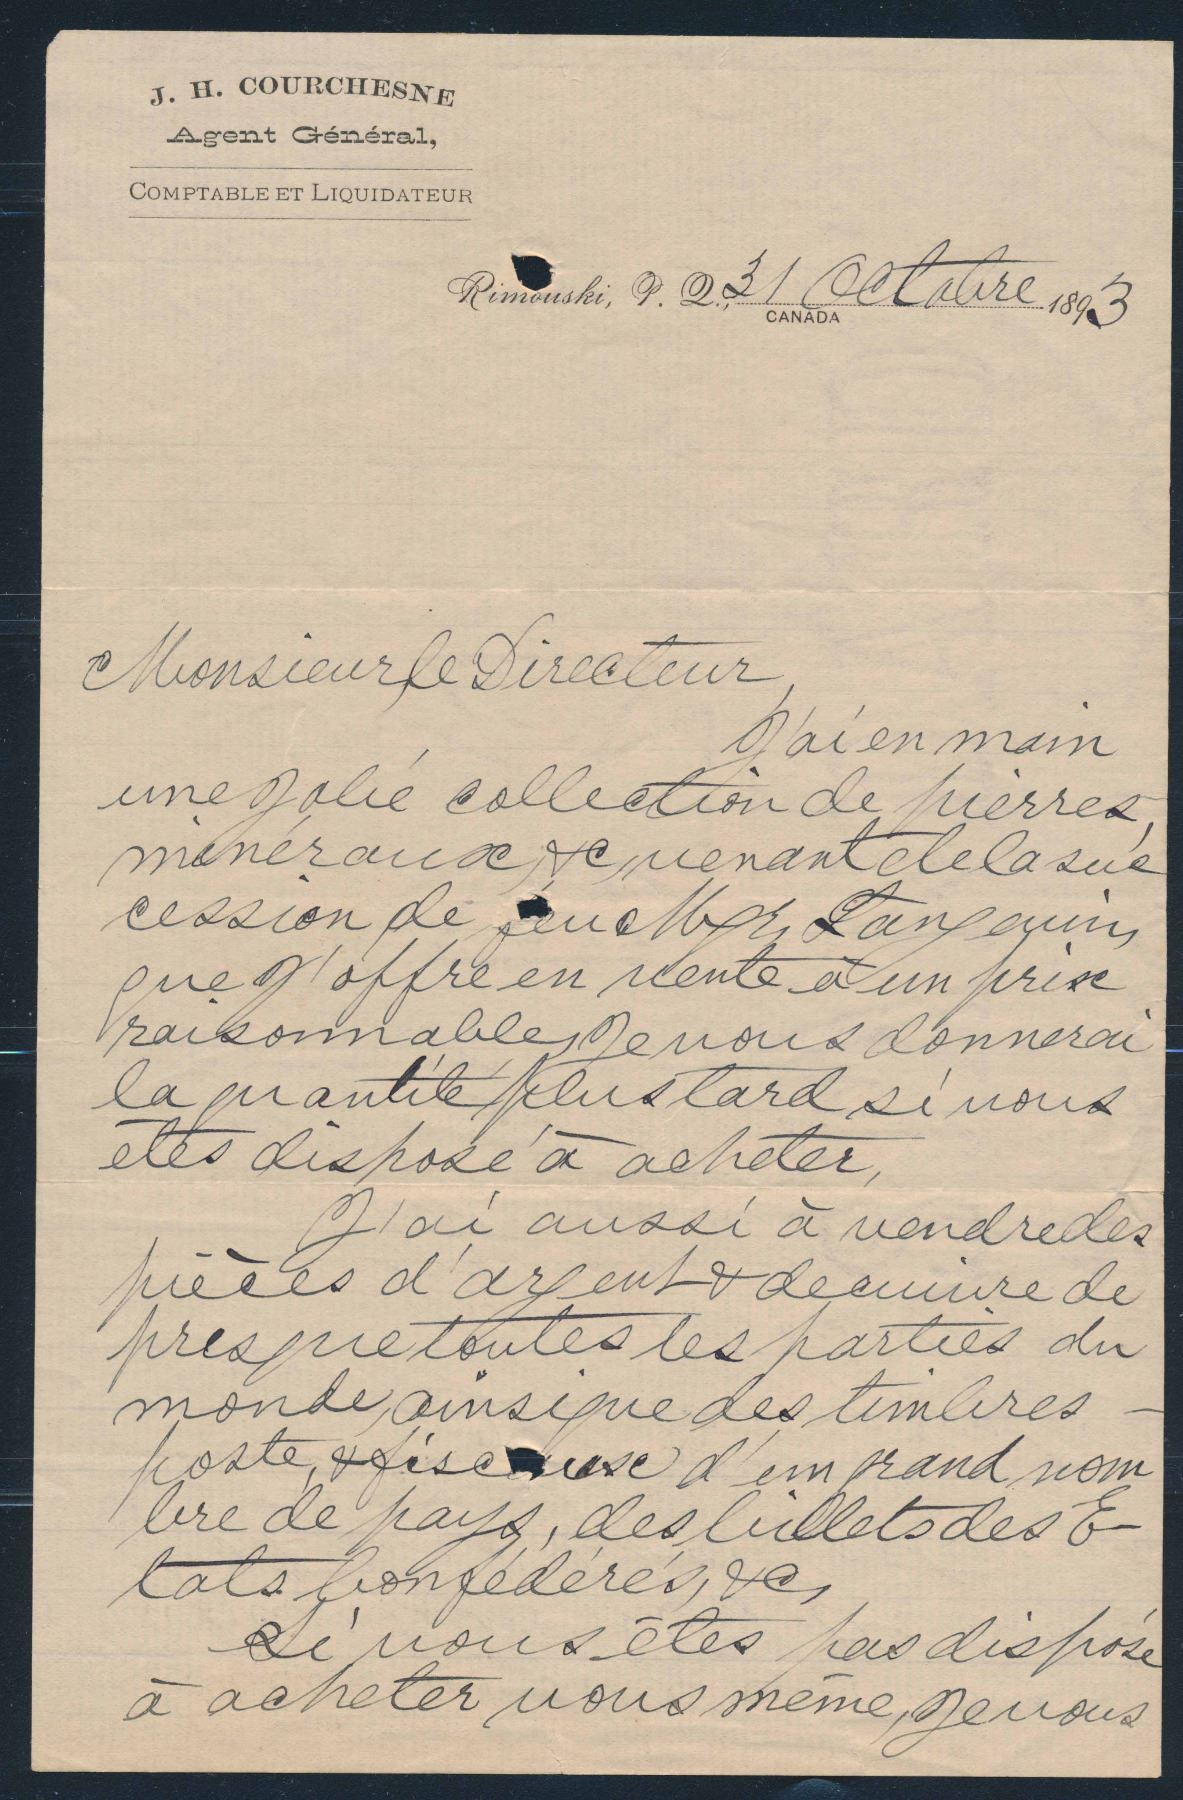 J. H. COURCHESNE
Agent Général,
COMPTABLE ET LIQUIDATEUR
Rimouski, P. Q., 31 Octobre 1893
CANADA
Monsieur le Directeur,
J'ai en main
une jolie collection de pierres,
minéraux, &c, venant de la suc
cession de feu Mgr. Langevin,
que j'offre en vente à un prix
raisonnable, je vous donnerai
la quantité plus tard si vous
êtes disposé à acheter,
J'ai aussi à vendre des
pièces d'argent & de cuivre de
presque toutes les parties du
monde, ainsi que des timbres -
poste, & fiscaux d'un grand nom
bre de pays, des billets des E-
tats Confédérés, &c,
Si vous êtes pas disposé
à acheter vous même, je vous